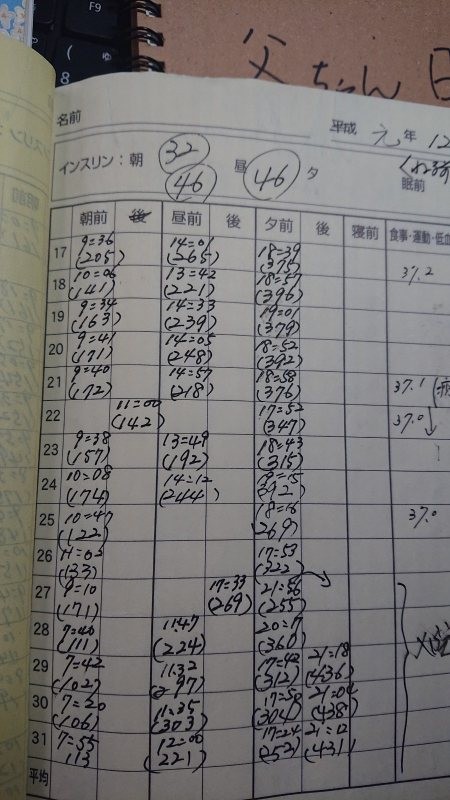 父ちゃん日
名前 平成 元年 12
インスリン：朝 32 昼 46 夕
46 眠前
朝前 後 昼前 後 夕前 後 寝前 食事・運動・低血
17 9=36 14=01 18=39
(205) (265) (315) 37.2
18 10=06 13=42 18=57
(141) (221) (396)
19 9=34 14=33 19=01
(163) (239) (379)
20 9=41 14=05 18=52
(171) (248) (392)
21 9=40 14=57 18=58
(172) (218) (376) 37.1
22 11=00 17=52
(142) (347) 37.0
23 9=38 13=49 18=43
(157) (192) (315)
24 10=08 14=12
(174) (244) (312)
25 10=47 18=16 37.0
(122) (269)
26 11=02 17=53
(133) (322)
27 9=10 17=33 21=56
(171) (269) (255)
28 7=40 11:47 20=17
(111) (224) (360)
29 7=42 11:32 17=42 21=18
(102) (277) (312) (436)
30 7=20 11=35 17=50 21=04
(106) (303) (304) (438)
31 7=55 12=00 17=24 21=12
113 (221) (252) (431)
平均